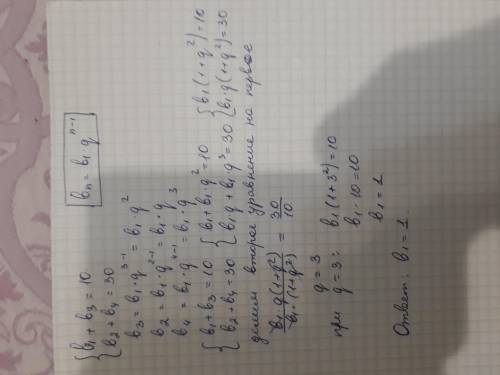 { b₁ + b₃ = 10
{ b₂ + b₄ = 30
bₙ = b₁ · qⁿ⁻¹
b₃ = b₁ · q³⁻¹ = b₁ · q²
b₂ = b₁ · q²⁻¹ = b₁ · q
b₄ = b₁ · q⁴⁻¹ = b₁ · q³
{ b₁ + b₃ = 10 { b₁ + b₁ · q² = 10 { b₁ (1 + q²) = 10
{ b₂ + b₄ = 30 { b₁q + b₁ · q³ = 30 { b₁ · q (1 + q²) = 30
делим второе уравнение на первое
b₁ · q (1 + q²) / b₁ · (1 + q²) = 30 / 10
q = 3
при q = 3: b₁ (1 + 3²) = 10
b₁ · 10 = 10
b₁ = 1
Ответ: b₁ = 1.